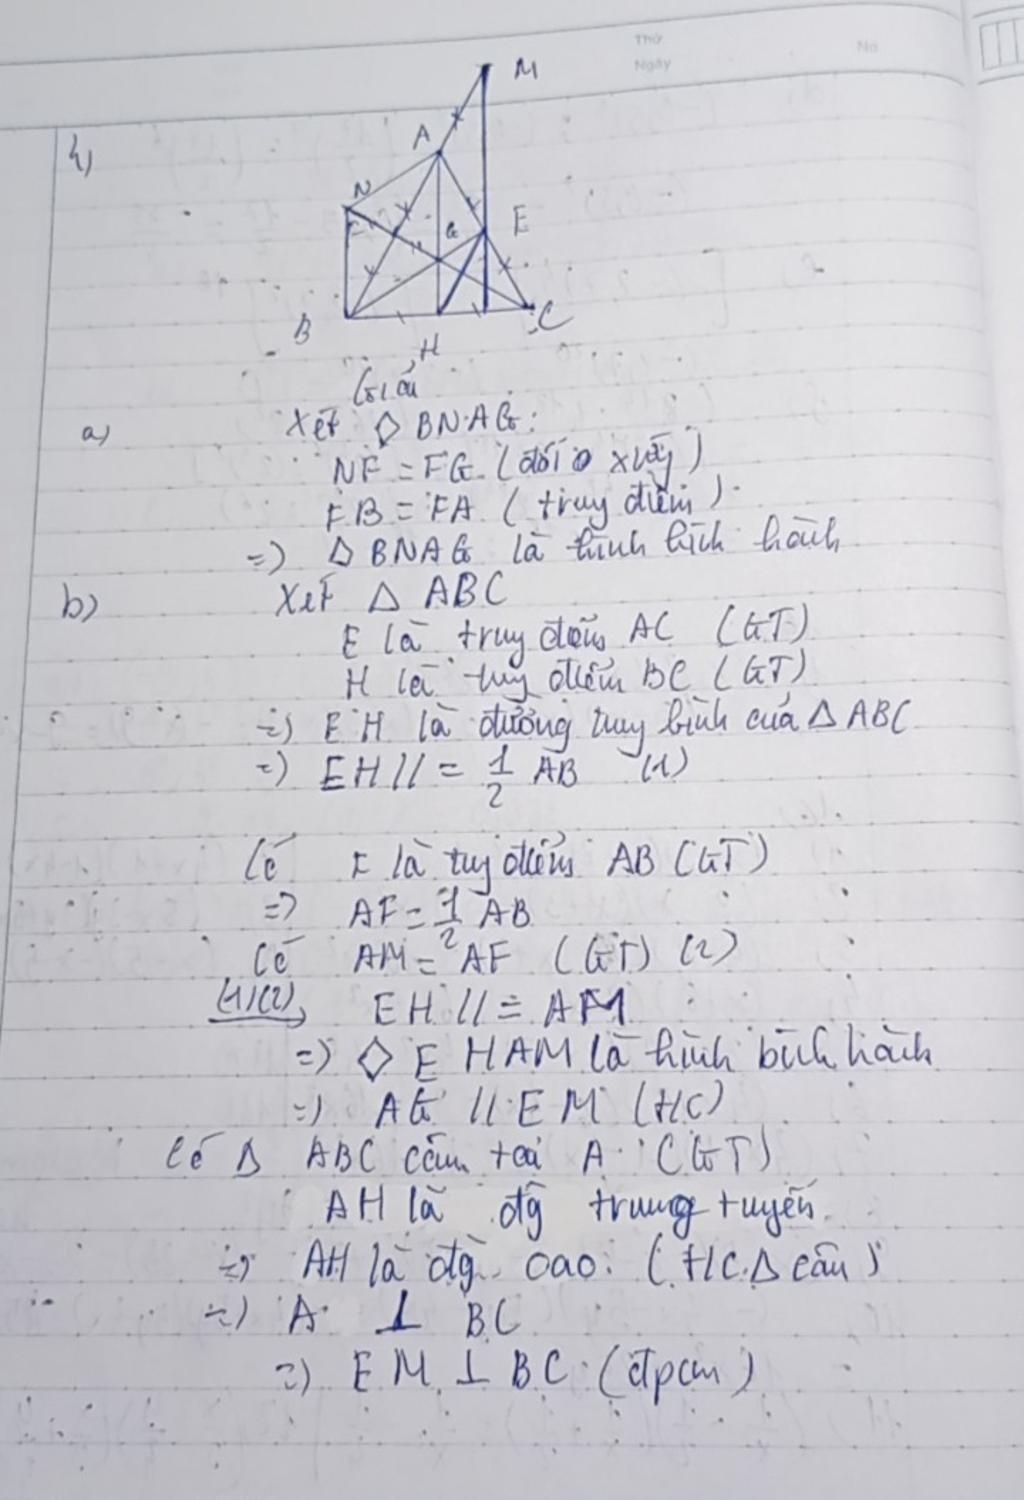 Thứ No
Ngày
4)
M
A
N
G
E
F
B
H
C
Giải
a) Xét ◇ BNAG:
NF = FG (đối xứg)
FB = FA (truy điểm)
=> △ BNAG là hình bìh hàh
b) Xét △ ABC
E là truy điểm AC (GT)
H là tuy điểm BC (GT)
=> EH là đường tuy bình của △ ABC
=> EH // = 1/2 AB (1)
Có F là tuy điểm AB (GT)
=> AF = 1/2 AB
Có AM = AF (GT) (2)
(1)(2) EH // = AM
=> ◇ E HAM là hình bìh hàh
=> AG // EM (HC)
Có △ ABC cân tại A (GT)
AH là đg trung tuyến
=> AH là đg cao (HC △ cân)
=> A ⊥ BC
=> EM ⊥ BC (đpcm)